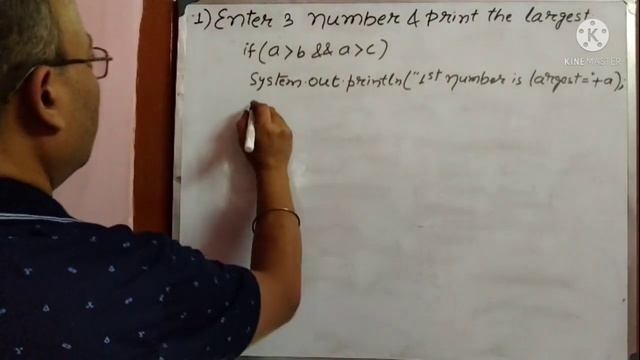 1) Enter 3 number & print the largest
if (a>b && a>c)
System.out.println("1st number is largest="+a);
K
KINEMASTER